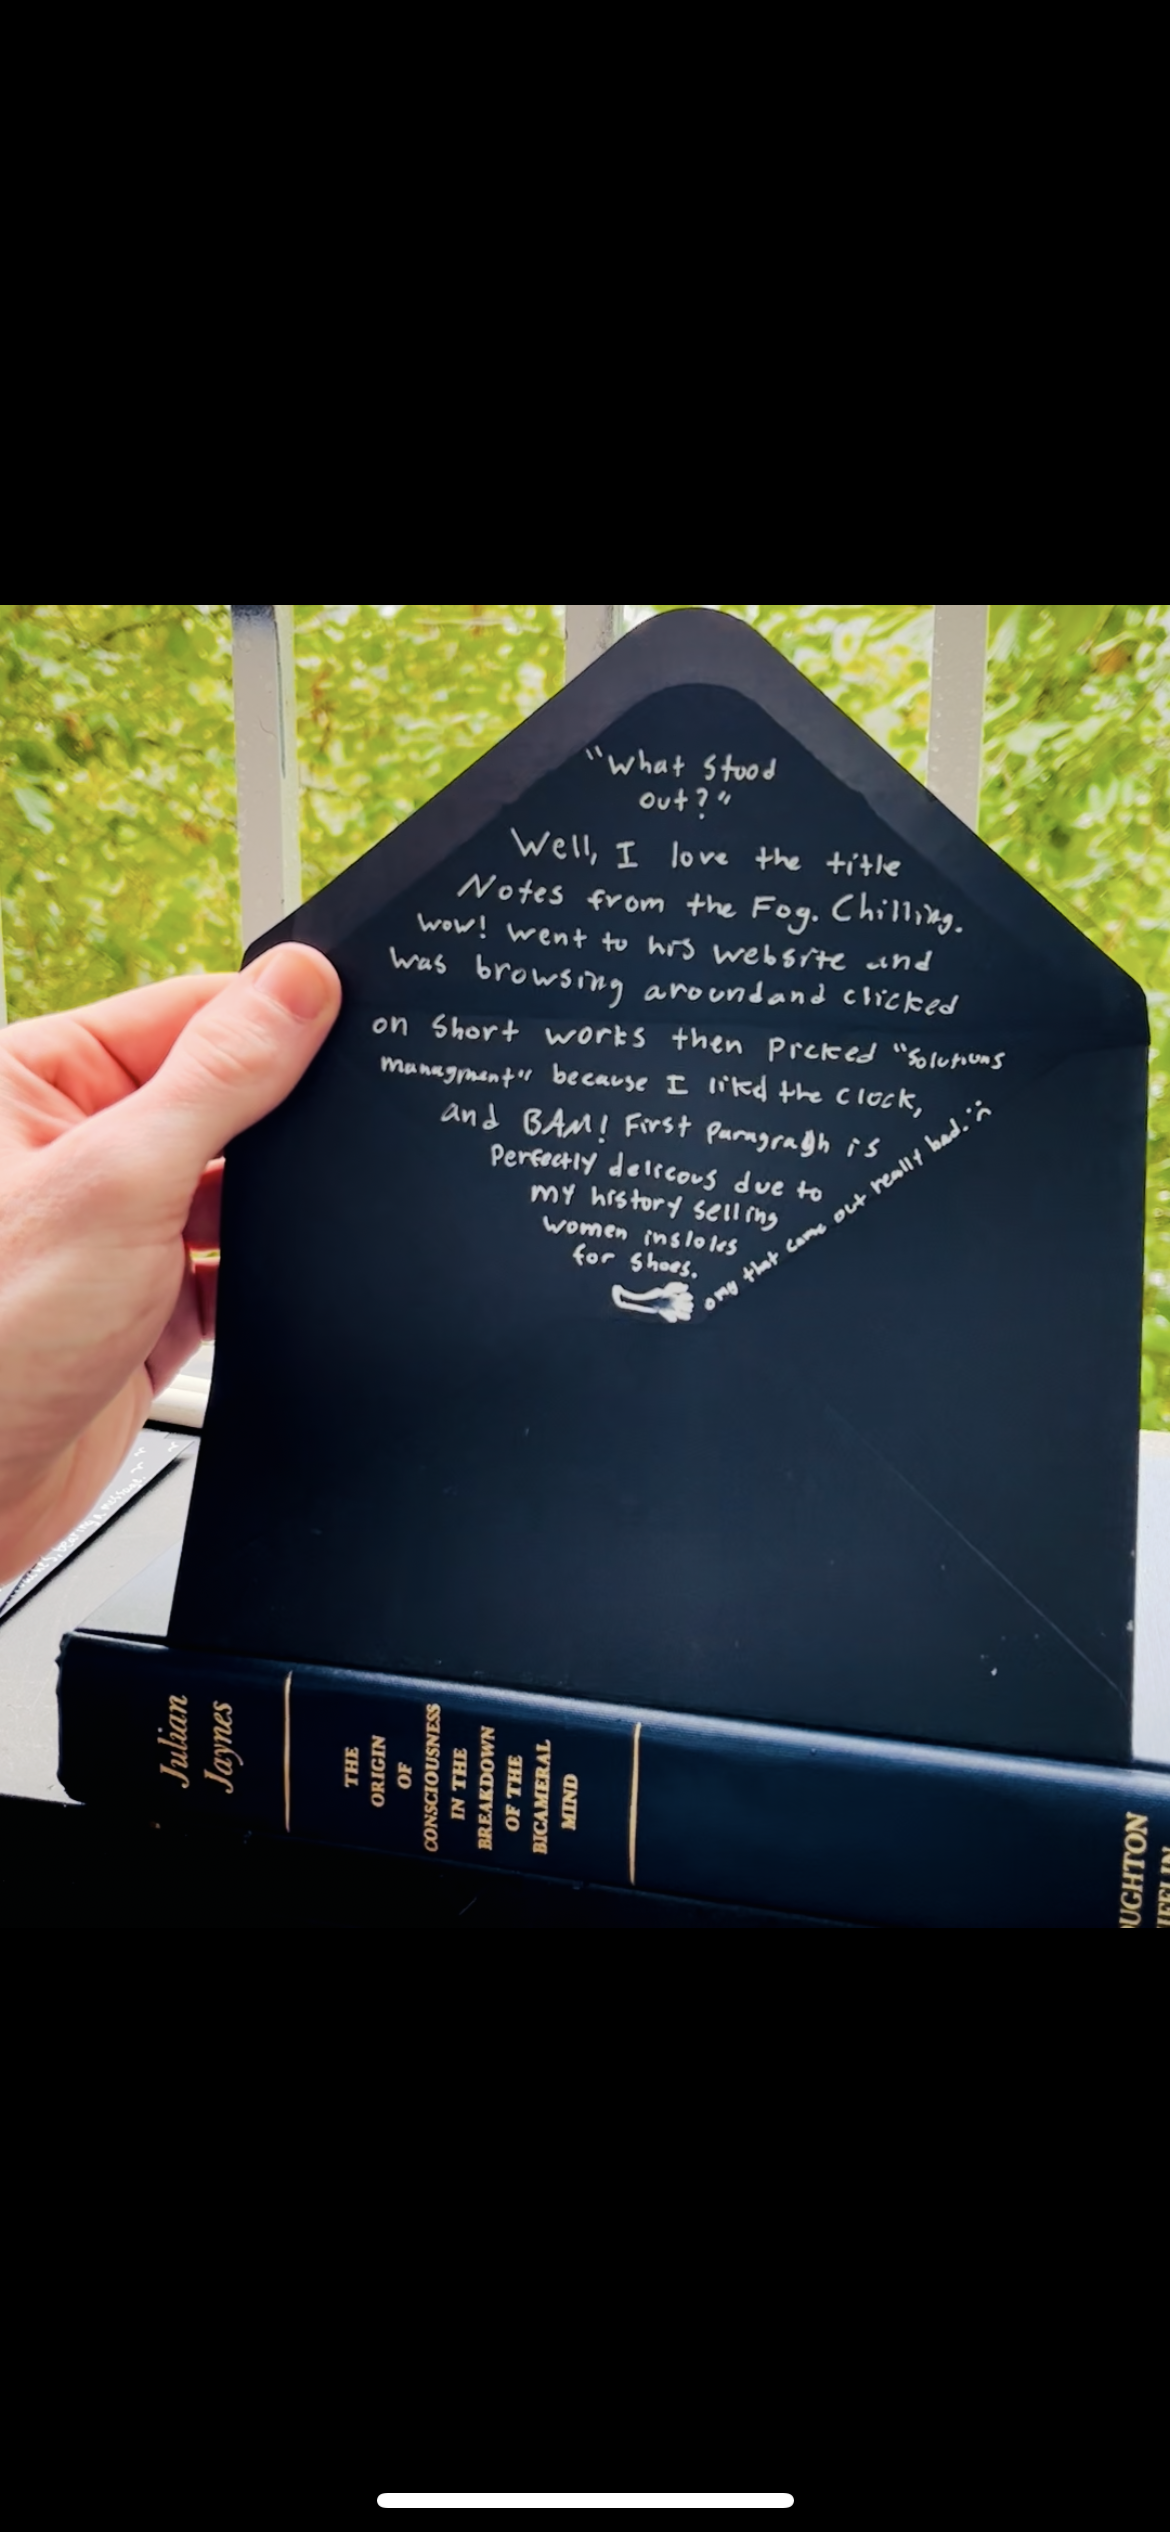 "What stood
out?"
Well, I love the title
Notes from the Fog. Chilling.
Wow! Went to his website and
was browsing around and clicked
on Short works then picked "Solutions
managment" because I likd the clock,
and BAM! First paragragh is
Perfectly delicous due to
my history selling
women insloles
for shoes.
omg that came out really bad. :(
bearing a message.
Julian
Jaynes
THE
ORIGIN
OF
CONSCIOUSNESS
IN THE
BREAKDOWN
OF THE
BICAMERAL
MIND
OUGHTON
IFFLIN